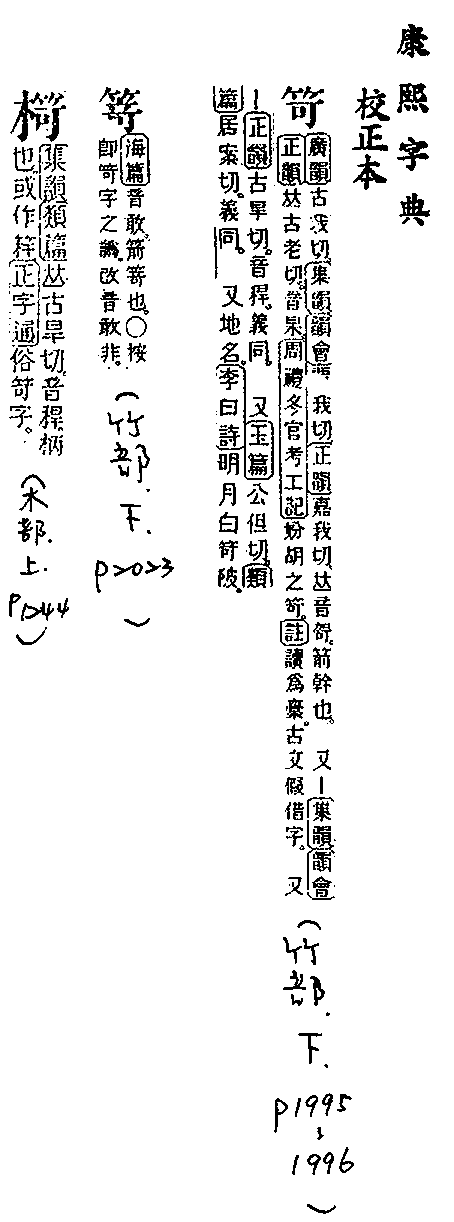 康熙字典
校正本
笴
廣韻古我切集韻韻會 我切正韻嘉我切𠀤音哿箭幹也又丨集韻韻會
正韻𠀤古老切音杲周禮冬官考工記妢胡之笴註讀爲稾古文假借字又
丨正韻古旱切音稈義同又玉篇公但切類
篇居案切義同又地名李白詩明月白笴陂
(竹部.下.
p1995
1996
)
海篇音敢箭笴也〇按
卽笴字之譌改音敢非
(竹部.下.
p2023
)
集韻類篇𠀤古旱切音稈柄
也或作梓正字通俗笴字
(木部.上.
p1244
)